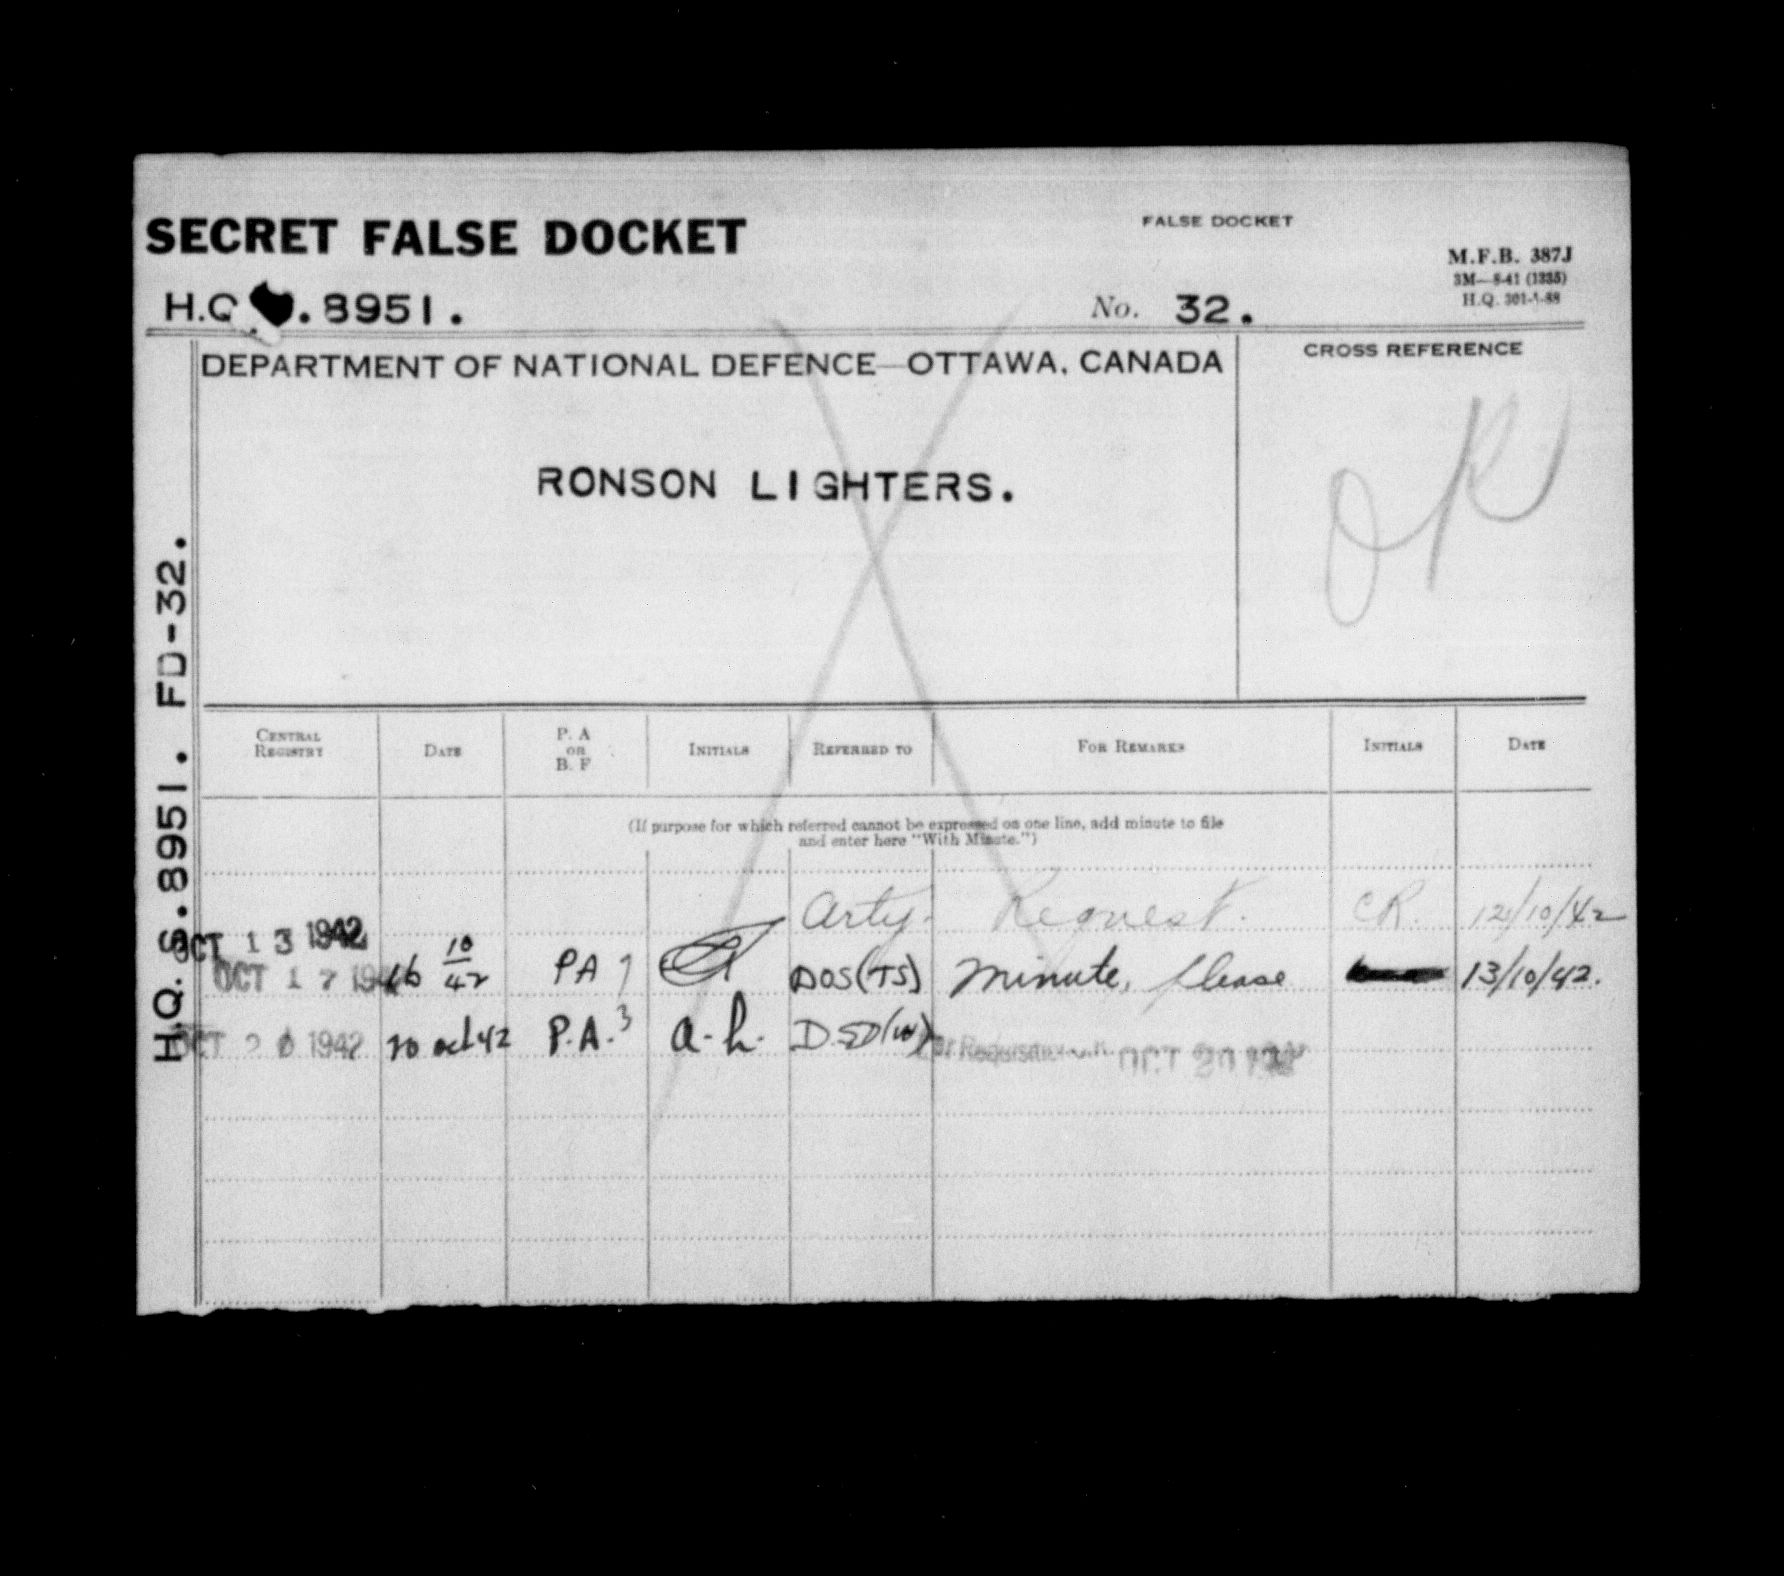 SECRET FALSE DOCKET
FALSE DOCKET
M.F.B. 387J
3M—8-41 (1335)
H.Q. 301-1-88
H.Q. .8951.
No. 32.
DEPARTMENT OF NATIONAL DEFENCE—OTTAWA, CANADA
CROSS REFERENCE
OK
RONSON LIGHTERS.
H.Q. S.8951. FD-32.
CENTRAL REGISTRY
DATE
P. A OR B. F
INITIALS
REFERRED TO
FOR REMARKS
INITIALS
DATE
(If purpose for which referred cannot be expressed on one line, add minute to file
and enter here "With Minute.")
Arty. Request. CR. 12/10/42
OCT 13 1942
OCT 17 194 16 10/42 PA 1 DOS(TS) Minute, please 13/10/42.
OCT 20 1942 20 Oct 42 P.A. 3 a.h. D.SD(W) OCT 20 1942